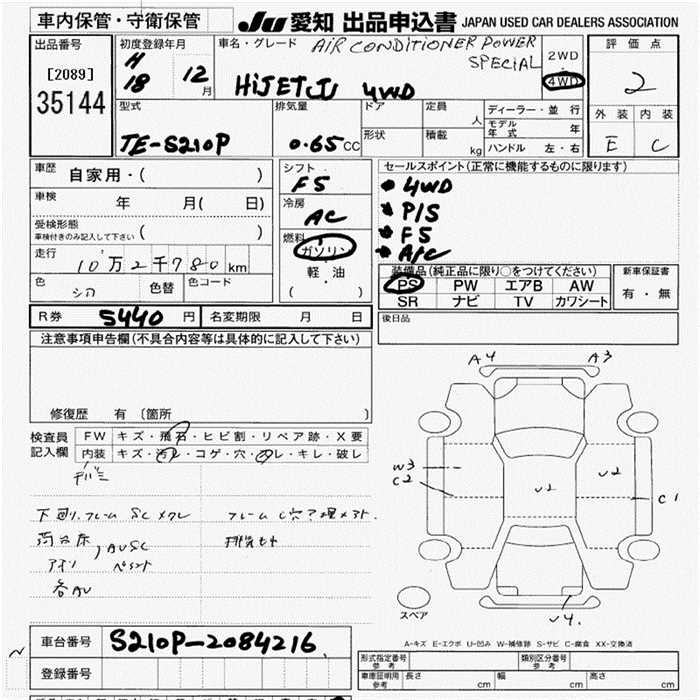 車内保管・守衛保管
JU 愛知 出品申込書 JAPAN USED CAR DEALERS ASSOCIATION
出品番号
[2089]
35144
初度登録年月
H
18 12月
車名・グレード
AIR CONDITIONER POWER
SPECIAL
HiJET 4WD
2WD
4WD
評価点
2
外装 内装
E C
型式
TE-S210P
排気量
0.65CC
ドア
形状
定員
人
積載
kg
ディーラー・並行
モデル年式 年
ハンドル 左・右
車歴
自家用・( )
車検 年 月( 日)
受検形態
車検付きのみ記入して下さい ( )
走行
10万2千780km
色
シロ
色替
色コード
シフト
F5
冷房
AC
燃料
ガソリン
軽油
(・)
セールスポイント(正常に機能するものに限ります)
4WD
P/S
F5
A/C
装備品(純正品に限り○をつけてください)
PS PW エアB AW
SR ナビ TV カワシート
新車保証書
有・無
R券 5440円
名変期限 月 日
後日品
注意事項申告欄(不具合内容等は具体的に記入して下さい)
修復歴 有〔箇所 〕
検査員
記入欄
FW キズ・飛石・ヒビ割・リペア跡・X要
内装 キズ・汚レ・コゲ・穴・スレ・キレ・破レ
下回リ,フレーム SC
フレーム C穴
AUSC
A4 A3
W3
C2
U2
U2
C1
U4.
スペア
A-キズ E-エクボ U-凹み W-補修跡 S-サビ C-腐食 XX-交換済
車台番号 S210P-2084216
登録番号
形式指定番号
参考
類別区分番号
参考
車庫証明用
参考
長さ cm 幅 cm 高さ cm